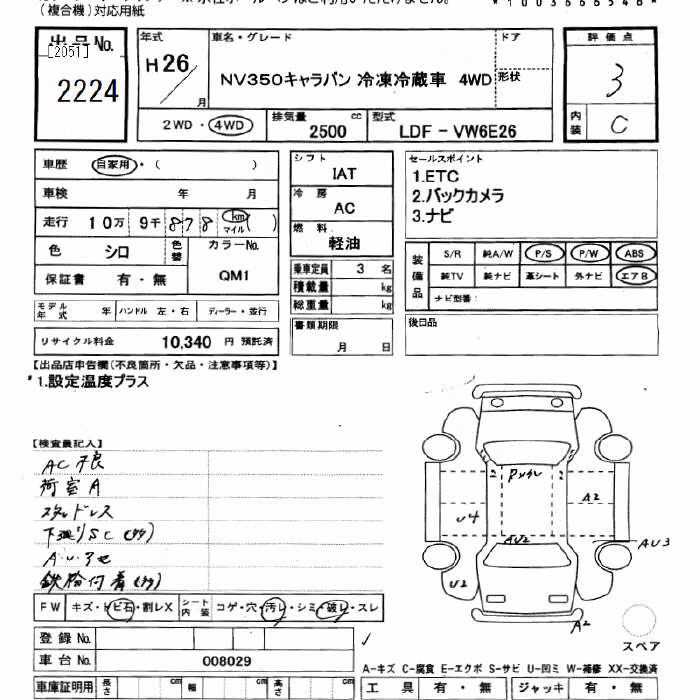 (複合機)対応用紙
出品No.
[2051]
2224
年式
H26/
月
車名・グレード
NV350キャラバン 冷凍冷蔵車 4WD
ドア
形状
評価点
3
内装
C
2WD・4WD
排気量
cc
2500
型式
LDF－VW6E26
車歴
自家用・( )
車検 年 月
走行 10万 9千 878 km マイル ( )
色 シロ
色替
カラーNo.
QM1
保証書 有・無
シフト
IAT
冷房
AC
燃料
軽油
乗車定員 3 名
積載量 kg
総重量 kg
書類期限
月 日
セールスポイント
1.ETC
2.バックカメラ
3.ナビ
装備品
S/R 純A/W P/S P/W ABS
純TV 純ナビ 革シート 外ナビ エアB
ナビ型番：
後日品
モデル年式 年 ハンドル 左・右 ディーラー・並行
リサイクル料金 10,340 円 預託済
【出品店申告欄(不良箇所・欠品・注意事項等)】
*1.設定温度プラス
【検査員記入】
AC不良
荷室A
スタッドレス
下廻りSC(サケ)
鉄粉付着(サケ)
FW キズ・トビ石・割レX シート内装 コゲ・穴・汚レ・シミ・破レ・スレ
登録No.
車台No. 008029
車庫証明用 長さ cm 幅 cm 高さ cm
A2
U4
AU2
AU3
U2
A2
スペア
A-キズ C-腐食 E-エクボ S-サビ U-凹ミ W-補修 XX-交換済
工具 有・無 ジャッキ 有・無